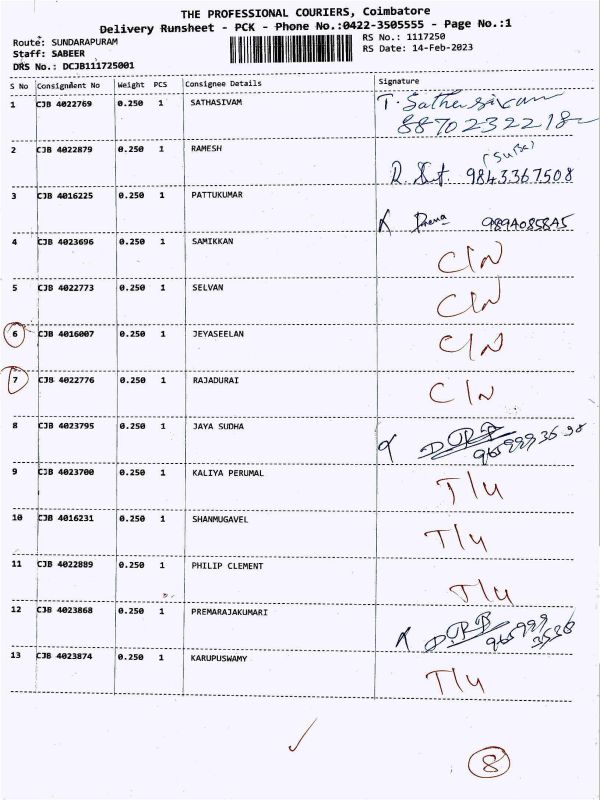 THE PROFESSIONAL COURIERS, Coimbatore
Delivery Runsheet - PCK - Phone No.:0422-3505555 - Page No.:1
Route: SUNDARAPURAM
RS No.: 1117250
Staff: SABEER
RS Date: 14-Feb-2023
DRS No.: DCJB111725001
S No Consignment No Weight PCS Consignee Details Signature
1 CJB 4022769 0.250 1 SATHASIVAM T. Sathasivam
8870232218
2 CJB 4022879 0.250 1 RAMESH
9843367508
3 CJB 4016225 0.250 1 PATTUKUMAR
4 CJB 4023696 0.250 1 SAMIKKAN C/N
5 CJB 4022773 0.250 1 SELVAN C/N
6 CJB 4016007 0.250 1 JEYASEELAN C/N
7 CJB 4022776 0.250 1 RAJADURAI C/N
8 CJB 4023795 0.250 1 JAYA SUDHA
9 CJB 4023700 0.250 1 KALIYA PERUMAL T/4
10 CJB 4016231 0.250 1 SHANMUGAVEL T/4
11 CJB 4022889 0.250 1 PHILIP CLEMENT T/4
12 CJB 4023868 0.250 1 PREMARAJAKUMARI
13 CJB 4023874 0.250 1 KARUPUSWAMY T/4
8